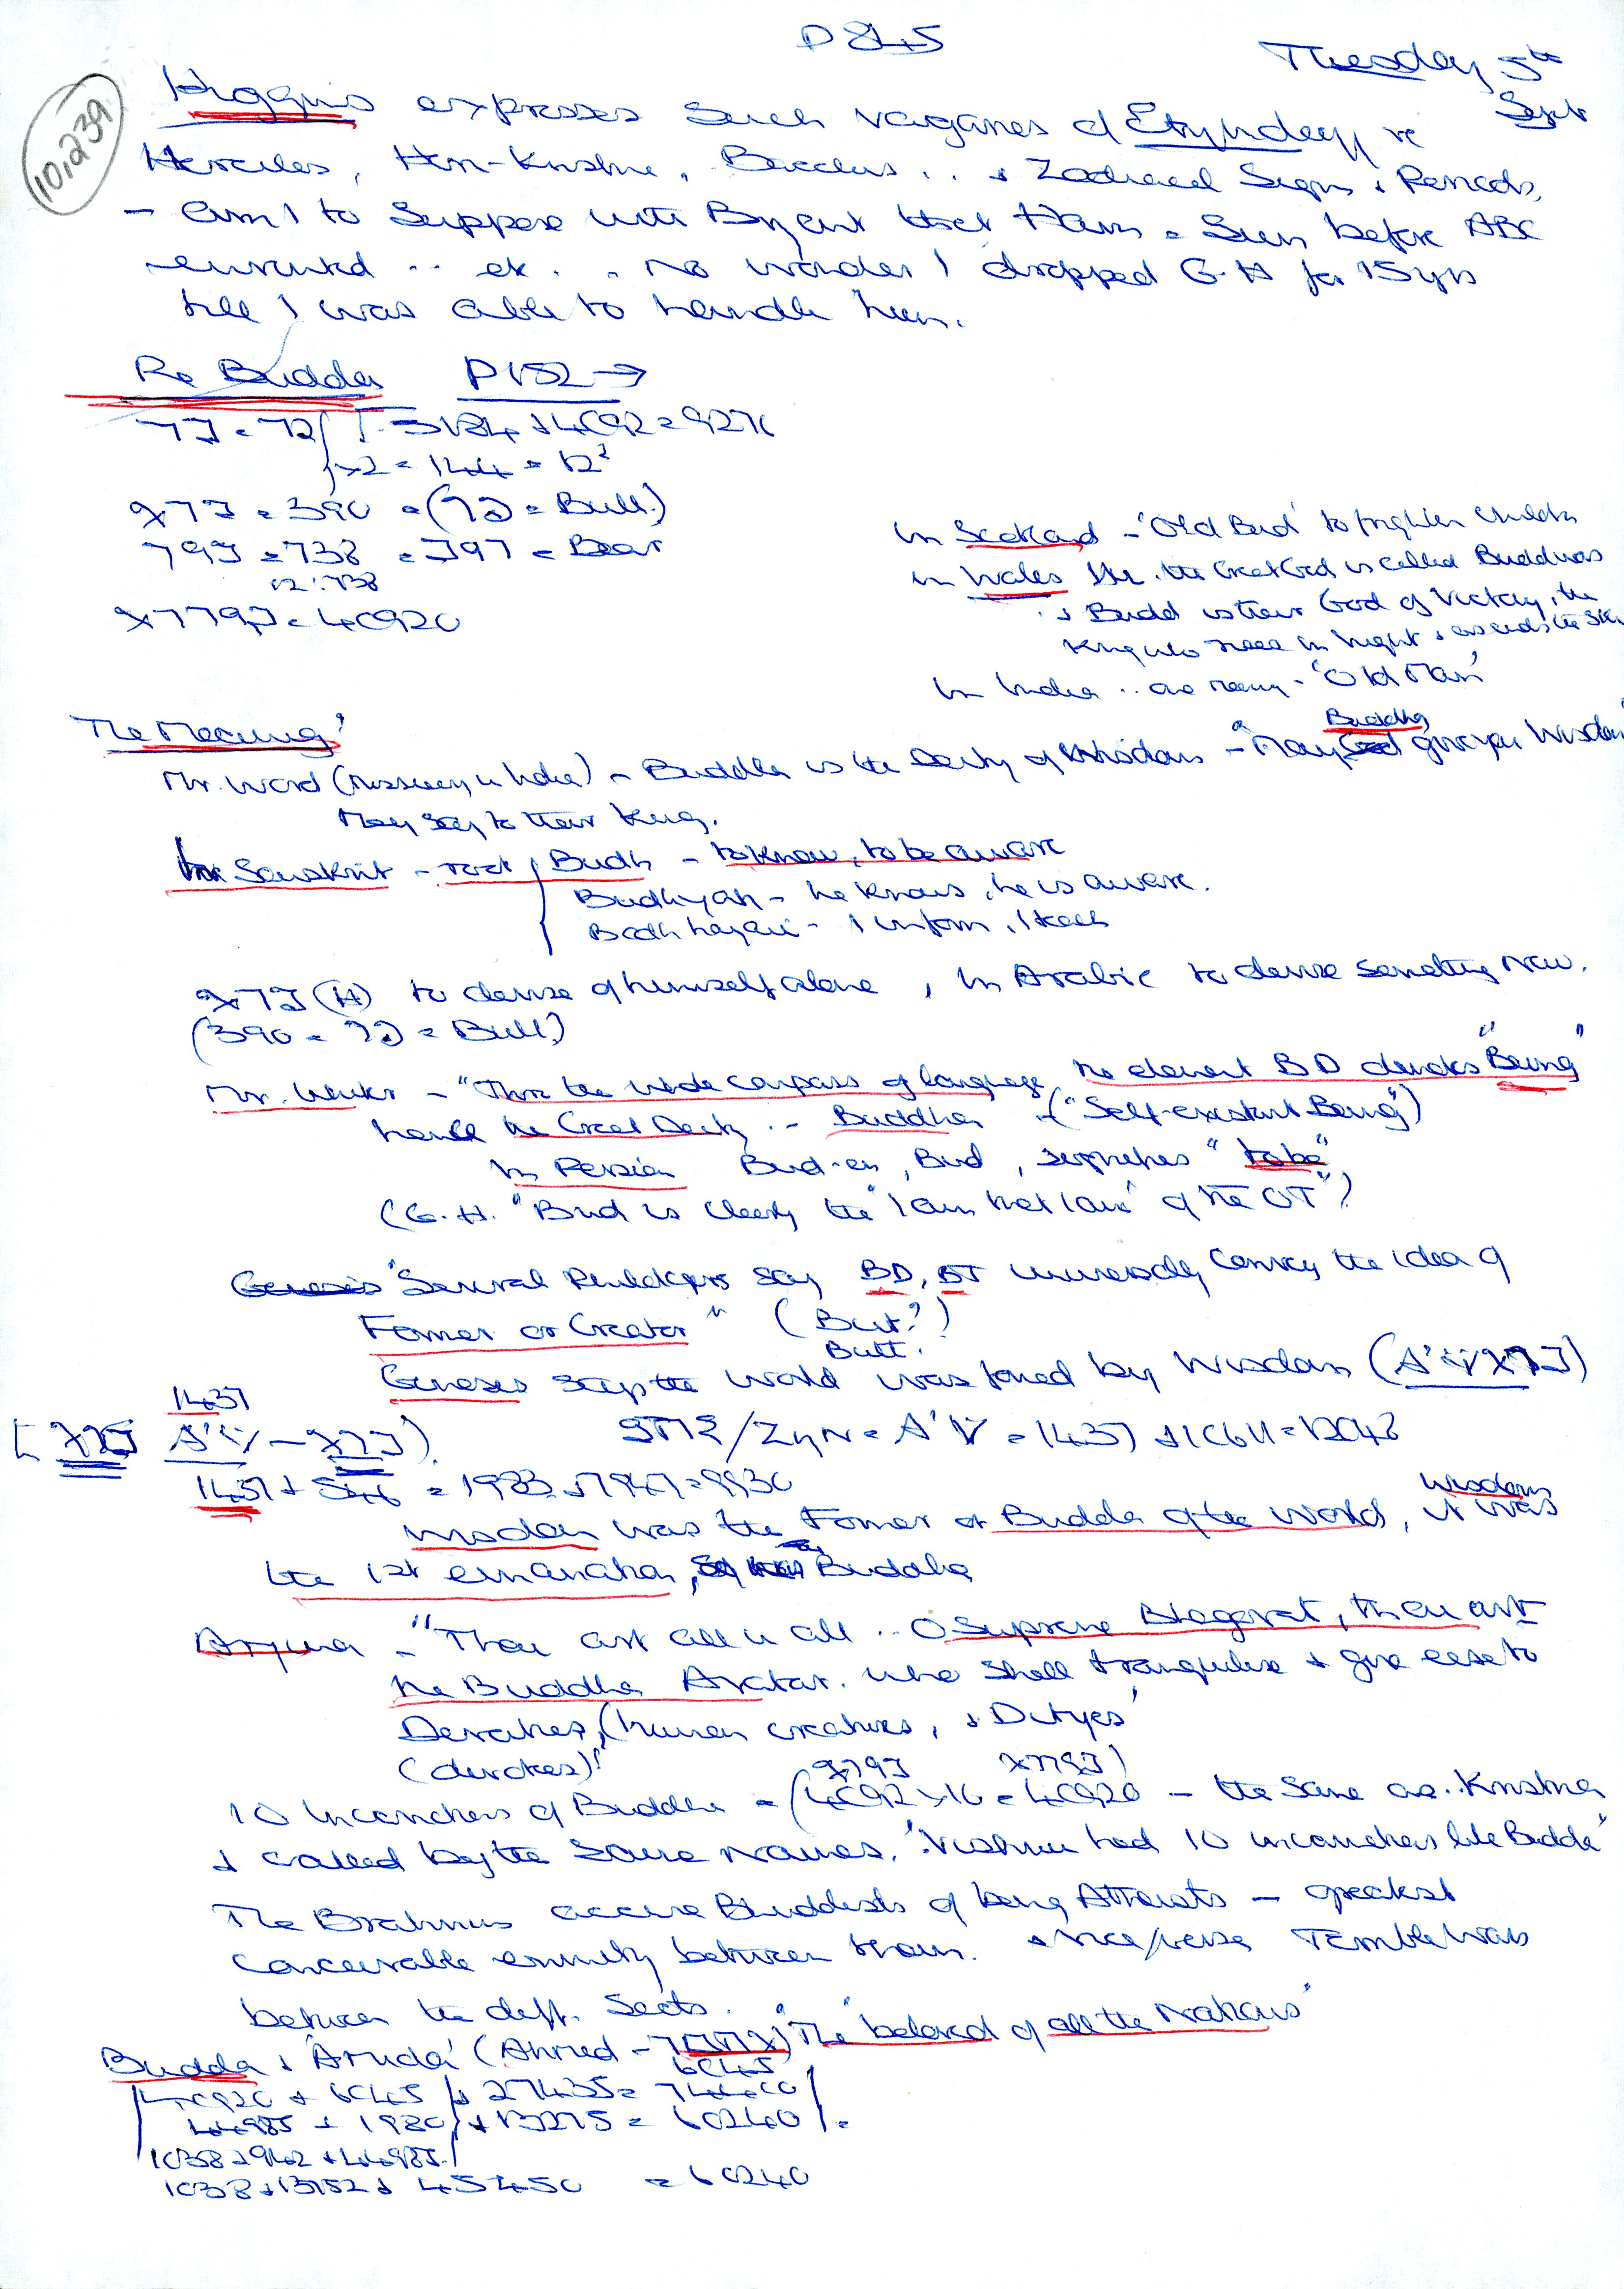 P 845
Tuesday 5th Sept
10,239
Higgins expresses such vagaries of Etymology re
Hercules, Heri-Krishna, Bacchus .. & Zodiacal Signs & Periods,
- am I to suppose with Bryant that Ham = Sun before ABC
invented .. etc. . no wonder I dropped G.H for 15 yrs
till I was able to handle him.
Re Buddha P152 →
x2 = 144 = 12²
= 390 = ( = Bull)
= 738 = = Bear
12:738
= 40920
In Scotland - 'Old Bud' to frighten children
In Wales the Great God is called Budduas
& Budd is their God of Victory, the
King who rises in light & ascends the sky
In India .. as many - 'Old Man'
The Meaning?
Mr. Ward (missionary in India) - Buddha is the Deity of Wisdom - "May Buddha give you Wisdom
they say to their King.
In Sanskrit - root Budh - to know, to be aware
Budhyati - he knows, he is aware.
Bodhhayami - I inform, I teach
(H) to devise of himself alone, in Arabic to devise something new.
(390 = = Bull)
Mr. - "Thro the wide compass of language, the element BD denotes "Being"
hence the Great Deity .. Buddha - ("Self-existent Being")
In Persian Bud-en, Bud, signifies "to be"
(G.H. "Bud is clearly the "I am that I am" of the OT")
"Several say BD, BT universally convey the idea of
Former or Creator" (But?)
Butt.
Genesis says the world was formed by Wisdom
1437
= 1437 + 10611 = 12048
1437 + 546 = 1983 + 7947 = 9930
Wisdom was the Former or Budda of the World, Wisdom it was
the 1st emanation, so was Buddha
Arjuna - "Thou art all in all .. O Supreme Bhagavat, thou art
the Buddha Avatar. who shall tranquilise & give ease to
Devatas, (human creatures, & Dityes'
(devotees)"
10 Incarnations of Buddha = (4092 x 10 = 40920 - the same as Krishna
& called by the same names. 'Vishnu had 10 incarnations like Budda'
The Brahmins accuse Bhuddists of being Atheists - greatest
conceivable enmity between them. & vice/versa Terrible Wars
between the diff. Sects.
Budda & 'Amida' (Ahmed - ) "The beloved of all the Nations"
6045
40920 + 6045 + 27435 = 74400
44985 + 1980 + 13275 = 60240
1038 + 942 + 44985
1038 + 13752 + 45450 = 60240